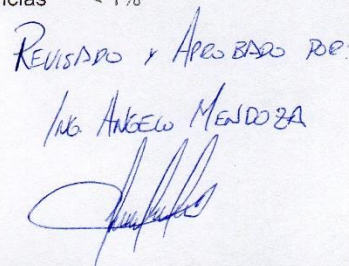 ncias < 1%
REVISADO Y APROBADO POR:
ING. ANGELO MENDOZA